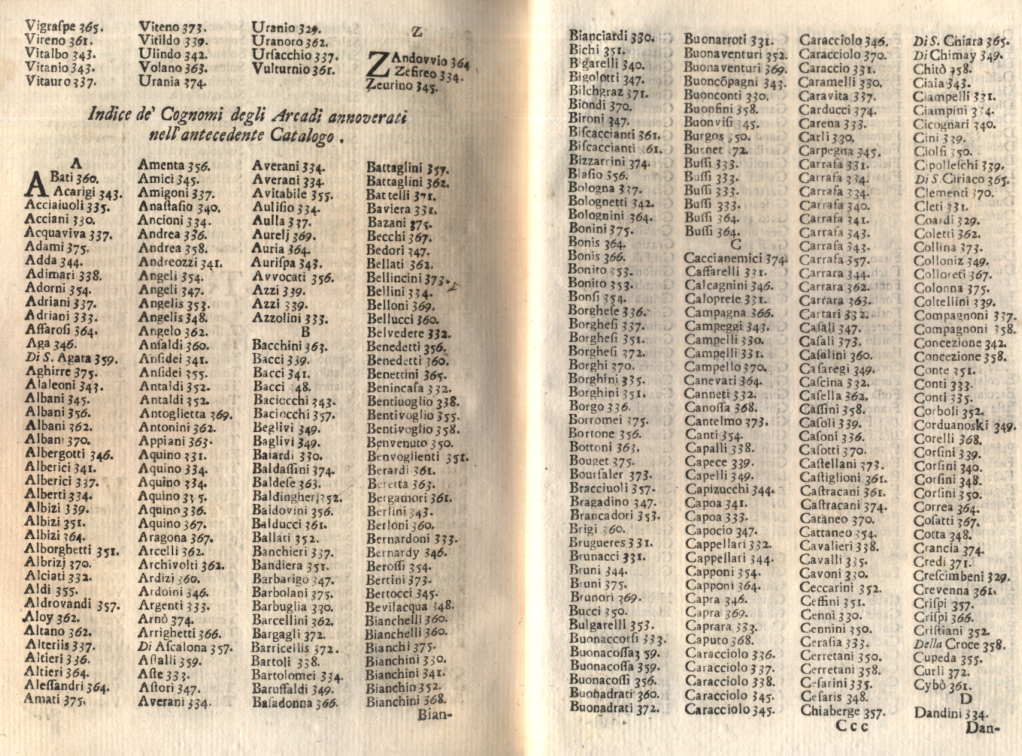 Vigraſpe 365.
Vireno 361.
Vitalbo 343.
Vitanio 343.
Vitauro 337.
Viteno 373.
Vitildo 339.
Ulindo 342.
Volano 363.
Urania 374.
Uranio 329.
Uranoro 362.
Urſacchio 337.
Vulturnio 361.
Z
ZAndovvio 364
Zefireo 334.
Zeurino 345.
Indice de' Cognomi degli Arcadi annoverati
nell'antecedente Catalogo.
A
ABati 360.
Acarigi 343.
Acciaiuoli 335.
Acciani 330.
Acquaviva 337.
Adami 375.
Adda 344.
Adimari 338.
Adorni 354.
Adriani 337.
Adriani 333.
Affaroſi 364.
Aga 346.
Di S. Agata 359.
Aghirre 375.
Alaleoni 343.
Albani 345.
Albani 356.
Albani 362.
Albani 370.
Albergotti 346.
Alberici 341.
Alberici 337.
Alberti 334.
Albizi 339.
Albizi 351.
Albizi 364.
Alborghetti 351.
Albrizj 370.
Alciati 332.
Aldi 355.
Aldrovandi 357.
Aloy 362.
Altano 362.
Alteriis 337.
Altieri 336.
Altieri 364.
Aleſſandri 364.
Amati 375.
Amenta 356.
Amici 345.
Amigoni 337.
Anaſtaſio 340.
Ancioni 334.
Andrea 336.
Andrea 358.
Andreozzi 341.
Angeli 354.
Angeli 347.
Angelis 353.
Angelis 348.
Angelo 362.
Anſaldi 360.
Anſidei 341.
Anſidei 355.
Antaldi 352.
Antaldi 352.
Antoglietta 369.
Antonini 362.
Appiani 363.
Aquino 331.
Aquino 334.
Aquino 334.
Aquino
Aquino 336.
Aquino 367.
Aragona 367.
Arcelli 362.
Archivolti 362.
Ardizi 360.
Ardoini 346.
Argenti 333.
Arnò 374.
Arrighetti 366.
Di Aſcalona 357.
Aſtalli 359.
Aſte 333.
Aſtori 347.
Averani 334.
Averani 334.
Averani 334.
Avitabile 355.
Auliſio 334.
Aulla 337.
Aurelj 369.
Auria 364.
Auriſpa 343.
Avvocati 356.
Azzi 339.
Azzi 339.
Azzolini 333.
B
Bacchini 363.
Bacci 339.
Bacci 341.
Bacci 48.
Baciocchi 343.
Baciocchi 357.
Beglivi 349.
Baglivi 349.
Baiardi 330.
Baldaſſini 374.
Baldeſe 363.
Baldingherj 352.
Baldovini 356.
Balducci 361.
Ballati 352.
Banchieri 337.
Bandiera 351.
Barbarigo 347.
Barbolani 375.
Barbuglia 330.
Barcellini 362.
Bargagli 372.
Barricellis 372.
Bartoli 338.
Bartolomei 334.
Baruffaldi 349.
Baſadonna 366.
Battaglini 357.
Battaglini 362.
Battelli 371.
Baviera 331.
Bazani 375.
Becchi 367.
Bedori 347.
Bellati 362.
Bellincini 373.
Bellini 334.
Belloni 369.
Bellucci 360.
Belvedere 332.
Benedetti 356.
Benedetti 360.
Benettini 365.
Benincaſa 332.
Bentiuoglio 338.
Bentivoglio 355.
Bentivoglio 358.
Benvenuto 350.
Benvoglienti 351.
Berardi 361.
Beretta 363.
Bergamori 361.
Berlini 343.
Berloni 360.
Bernardoni 333.
Bernardy 346.
Beroſſi 354.
Bertini 373.
Bertocci 345.
Bevilacqua 348.
Bianchelli 360.
Bianchelli 360.
Bianchi 375.
Bianchini 330.
Bianchini 341.
Bianchio 352.
Bianchini 368.
Bian-
Bianciardi 330.
Bichi 351.
Bigarelli 340.
Bigolotti 347.
Bilchgraz 371.
Biondi 370.
Bironi 347.
Biſcaccianti 361.
Biſcaccianti 61.
Bizzarrini 374.
Blaſio 356.
Bologna 337.
Bolognetti 342.
Bolognini 364.
Bonini 375.
Bonis 364.
Bonis 366.
Bonito 353.
Bonito 353.
Bonſi 354.
Borgheſe 336.
Borgheſi 337.
Borgheſi 351.
Borgheſi 372.
Borghi 370.
Borghini 335.
Borghini 351.
Borgo 336.
Borromei 375.
Bortone 356.
Bottoni 363.
Bouget 375.
Bourſaler 373.
Bracciuoli 357.
Bragadino 347.
Brancadori 353.
Brigi 360.
Brugueres 331.
Brunacci 331.
Bruni 344.
Bruni 375.
Brunori 369.
Bucci 350.
Bulgarelli 353.
Buonaccorſi 333.
Buonacoſſa 359.
Buonacoſſi 356.
Buonadrati 360.
Buonadrati 372.
Buonarroti 331.
Buonaventuri 352.
Buonaventuri 369.
Buoncõpagni 343.
Buonconti 330.
Buonfini 358.
Buonviſi 345.
Burgos 50.
Burnet 72.
Buſſi 333.
Buſſi 333.
Buſſi 333.
Buſſi 333.
Buſſi 364.
Buſſi 364.
C
Caccianemici 374.
Caffarelli 331.
Calcagnini 346.
Caloprese 331.
Campagna 366.
Campeggi 343.
Campelli 330.
Campelli 331.
Campello 370.
Canevari 364.
Canneti 332.
Canoſſa 368.
Cantelmo 373.
Canti 354.
Capalli 338.
Capece 339.
Capelli 349.
Capizucchi 344.
Capoa 341.
Capoa 333.
Capocio 347.
Cappellari 332.
Cappellari 344.
Capponi 354.
Capponi 364.
Capra 346.
Capra 369.
Caprara 333.
Caputo 368.
Caracciolo 336.
Caracciolo 337.
Caracciolo 338.
Caracciolo 345.
Caracciolo 345.
Caracciolo 346.
Caracciolo 370.
Caraccio 331.
Caramelli 330.
Caravita 337.
Carducci 374.
Carena 333.
Carli 330.
Carpegna 345.
Carrafa 331.
Carrafa 334.
Carrafa 334.
Carrafa 340.
Carrafa 341.
Carrafa 343.
Carrafa 343.
Carrafa 357.
Carrara 344.
Carrara 362.
Carrara 363.
Cartari 332.
Caſali 347.
Caſali 373.
Caſalini 360.
Caſaregi 349.
Caſcina 332.
Caſella 362.
Caſſini 358.
Caſoli 339.
Caſoni 336.
Caſotti 370.
Caſtellani 373.
Caſtiglioni 361.
Caſtracani 361.
Caſtracani 374.
Cataneo 370.
Cattaneo 354.
Cavalieri 338.
Cavalli 335.
Cavoni 330.
Ceccarini 352.
Ceffini 351.
Cenni 330.
Cennini 350.
Ceraſia 333.
Cerretani 350.
Cerretani 358.
Ceſarini 335.
Ceſaris 348.
Chiaberge 357.
Ccc
Di S. Chiara 365.
Di Chimay 349.
Chitò 358.
Ciaia 343.
Ciampelli 331.
Ciampini 334.
Cicognari 340.
Cini 339.
Ciolfi 350.
Cipolleſchi 339.
Di S. Ciriaco 365.
Clementi 370.
Cleti 331.
Coardi 329.
Coletti 362.
Collina 373.
Colloniz 349.
Colloreti 367.
Colonna 375.
Coltellini 339.
Compagnoni 337.
Compagnoni 358.
Concezione 342.
Concezione 358.
Conte 351.
Conti 333.
Conti 335.
Corboli 352.
Corduanoski 349.
Corelli 368.
Corſini 339.
Corſini 340.
Corſini 348.
Corſini 350.
Correa 364.
Coſatti 367.
Cotta 348.
Crancia 374.
Credi 371.
Creſcimbeni 329.
Crevenna 361.
Criſpi 357.
Criſpi 366.
Criſtiani 352.
Della Croce 358.
Cupeda 355.
Curli 372.
Cybò 361.
D
Dandini 334.
Dan-